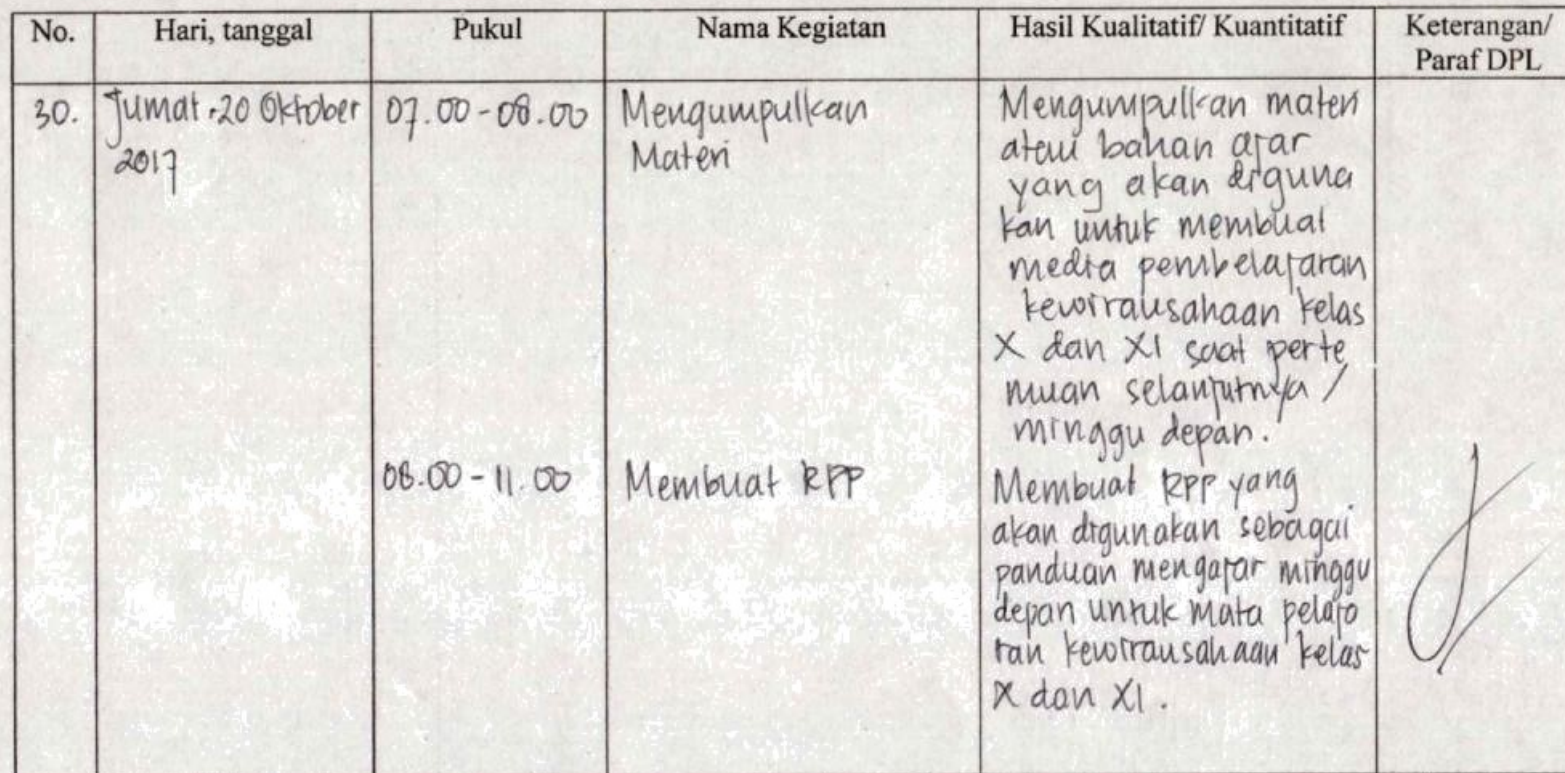 No. Hari, tanggal Pukul Nama Kegiatan Hasil Kualitatif/ Kuantitatif Keterangan/
Paraf DPL
30. Jumat, 20 Oktober 07.00 - 08.00 Mengumpulkan Mengumpulkan materi
2017 Materi atau bahan ajar
yang akan diguna
kan untuk membuat
media pembelajaran
kewirausahaan kelas
X dan XI saat perte
muan selanjutnya /
minggu depan.
08.00 - 11.00 Membuat RPP Membuat RPP yang
akan digunakan sebagai
panduan mengajar minggu
depan untuk mata pelaja
ran kewirausahaan kelas
X dan XI.